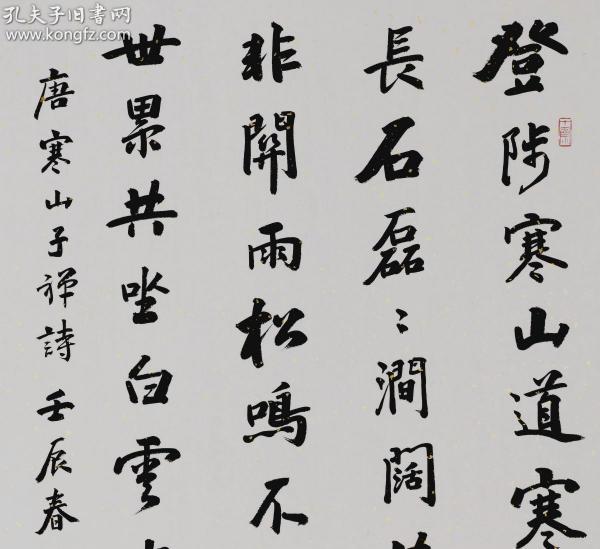 孔夫子旧书网
www.kongfz.com
登陟寒山道寒
長石磊〻澗闊
非關雨松鳴不
世累共坐白雲
唐寒山子禪詩 壬辰春